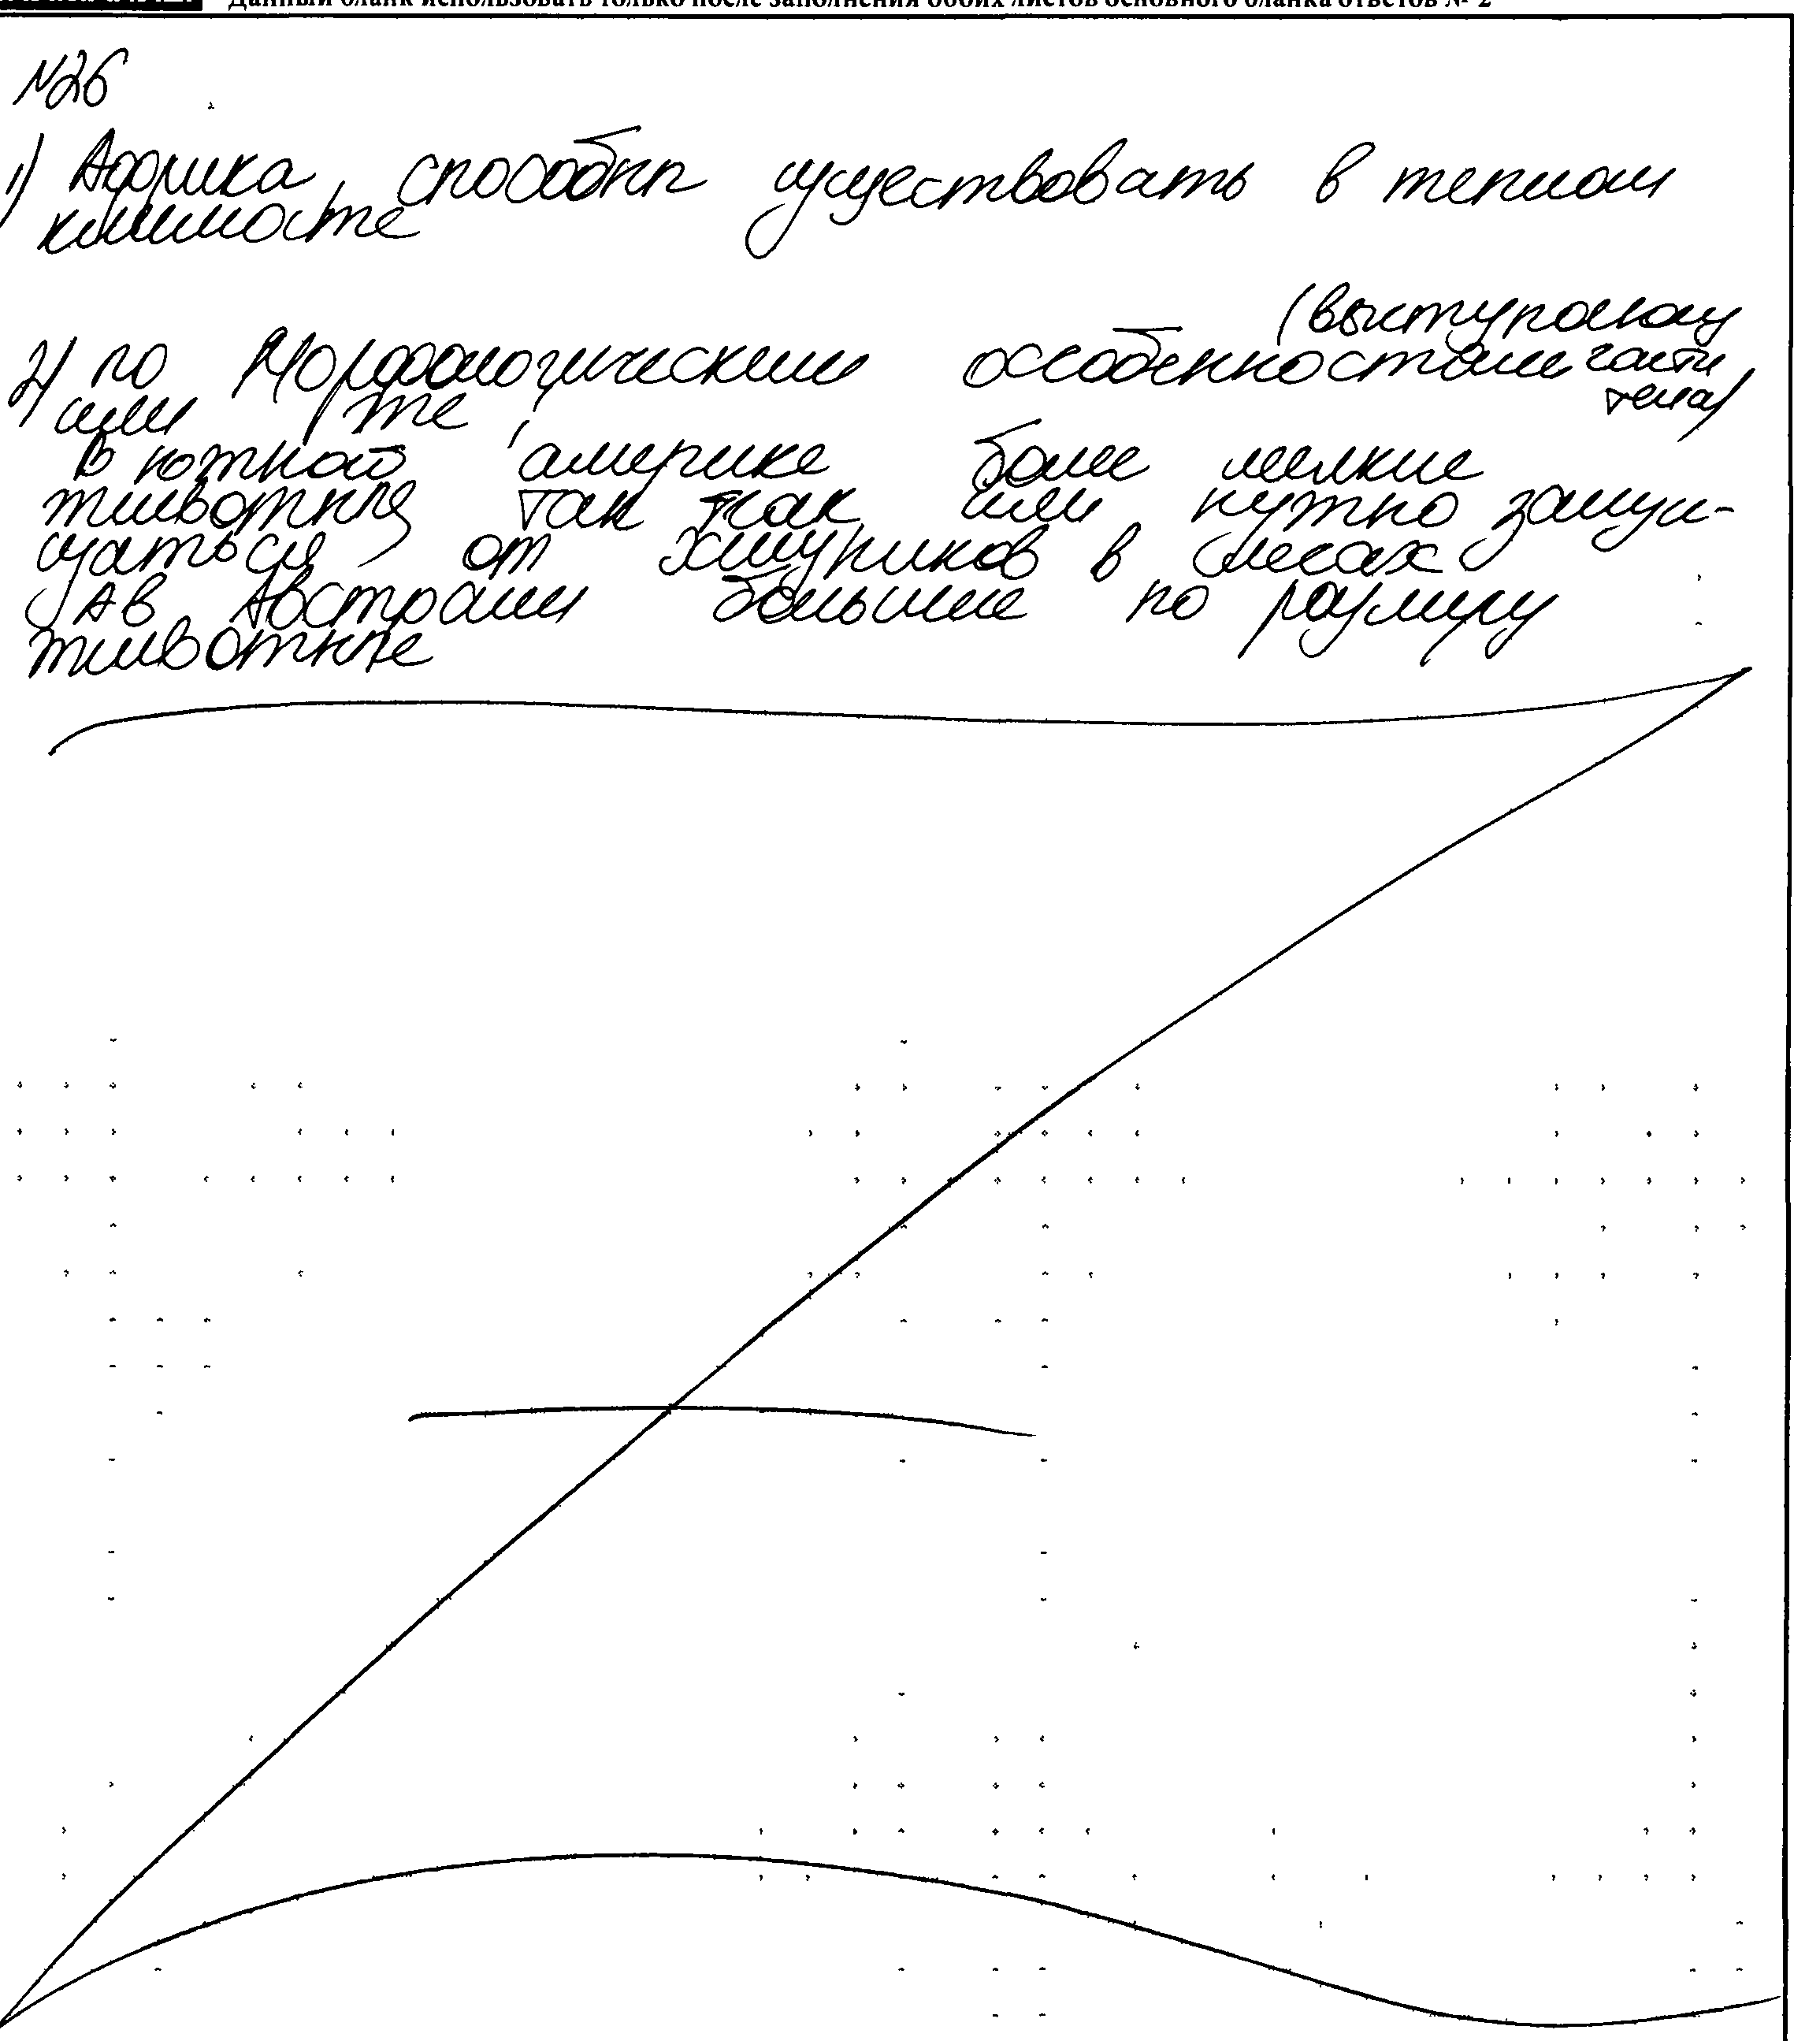 Данный бланк использовать только после заполнения обоих листов основного бланка ответов № 2
№26
1) Африка, способны существовать в теплом
климосте
(выступающ
2) по Морфологическим особенностям части
тела)
или же,
В южной америке более мелкие
животные так как или нужно защи-
щаться от хищников в лесах
А в Австралии большие по размеру
животные